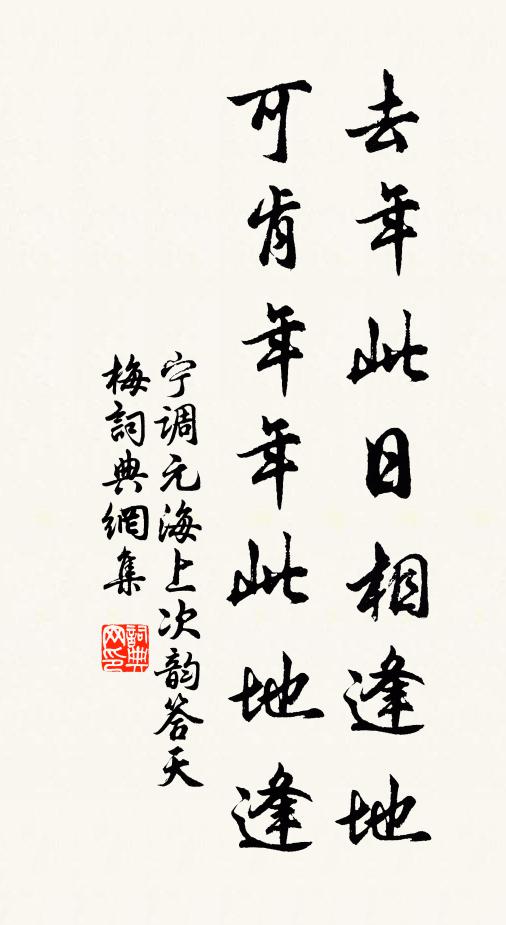 去年此日相逢地
可肯年年此地逢
宁调元海上次韵答天
梅詞典網集
詞典网印